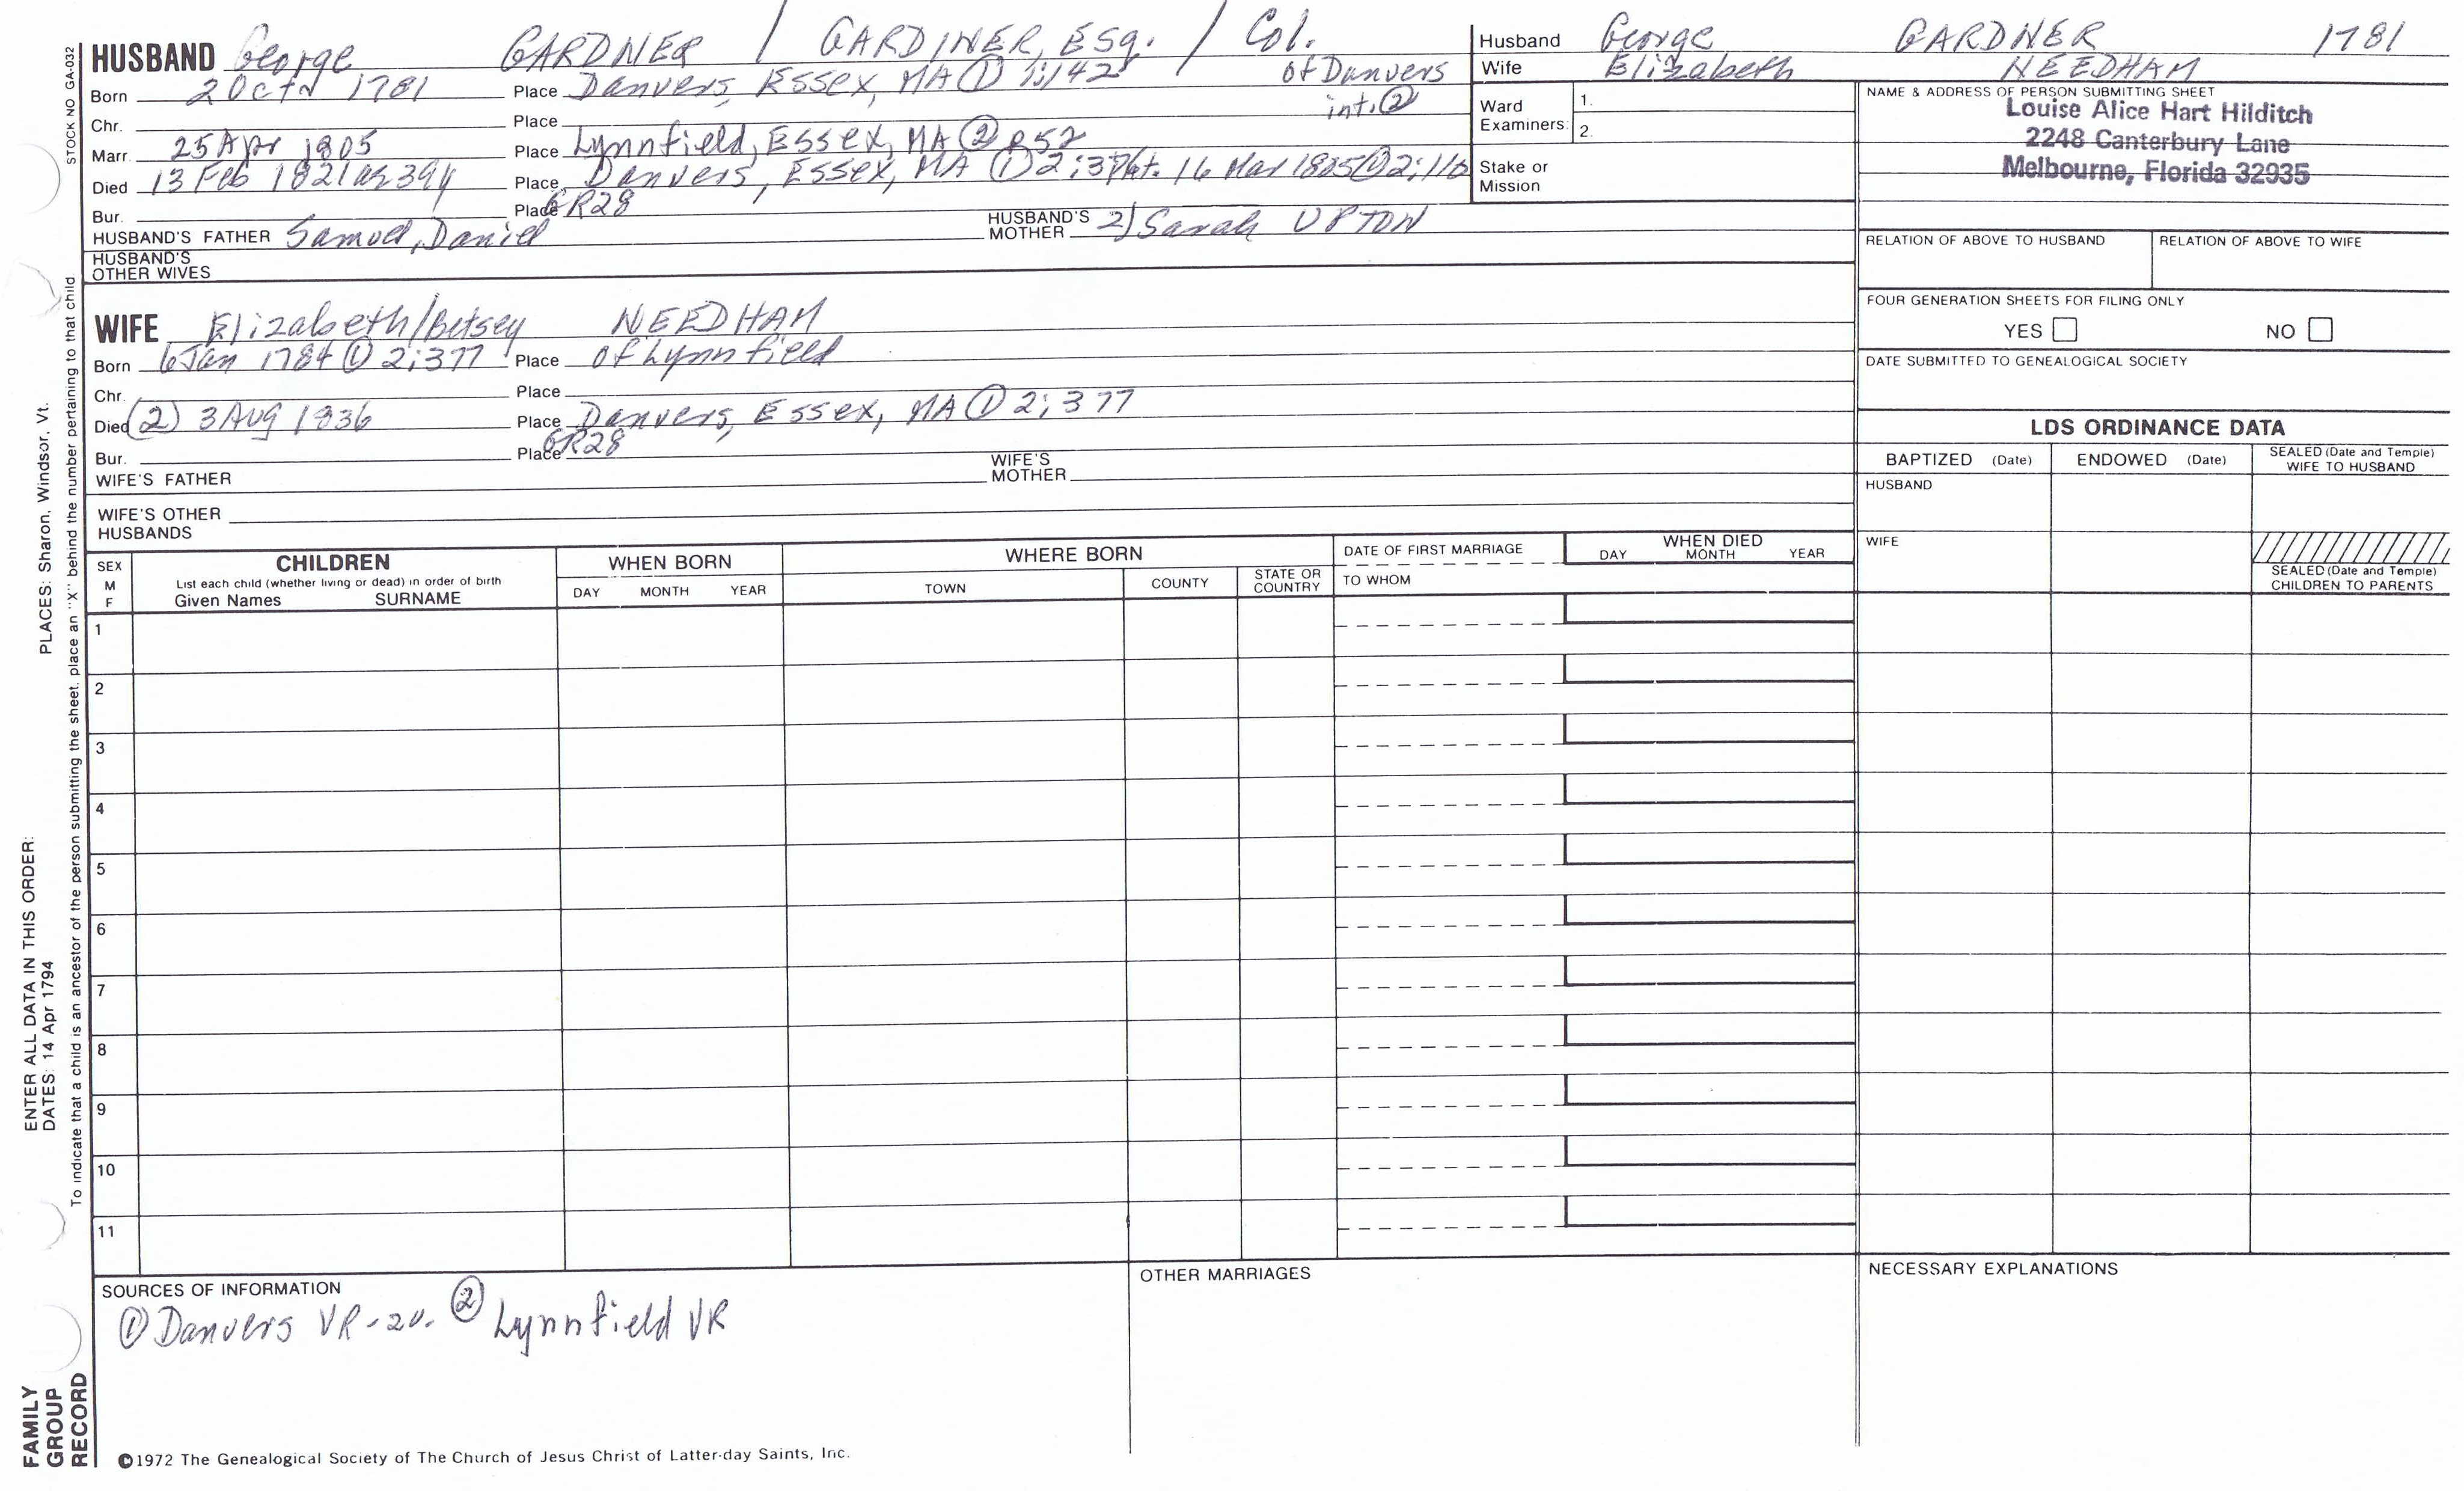 HUSBAND George GARDNER / GARDINER, ESq. / Col.
Born 20ctd 1781 Place Danvers, Essex, MA ① 1:142 of Danvers
Chr. Place int. ②
Marr. 25 Apr 1805 Place Lynnfield, Essex, MA ② p52
Died 13 Feb 1821 ae 39y Place Danvers, Essex, MA ① 2:377 int. 16 Mar 1805 ① 2:110
Bur. Place GR28
HUSBAND'S FATHER Samuel, Daniel HUSBAND'S MOTHER 2) Sarah UPTON
HUSBAND'S
OTHER WIVES
WIFE Elizabeth/Betsey NEEDHAM
Born 6 Jan 1784 ① 2:377 Place of Lynnfield
Chr. Place
Died (2) 3 Aug 1836 Place Danvers, Essex, MA ① 2:377
Bur. Place GR28
WIFE'S FATHER WIFE'S MOTHER
WIFE'S OTHER
HUSBANDS
Husband George GARDNER 1781
Wife Elizabeth NEEDHAM
Ward
Examiners: 1.
2.
Stake or
Mission
NAME & ADDRESS OF PERSON SUBMITTING SHEET
Louise Alice Hart Hilditch
2248 Canterbury Lane
Melbourne, Florida 32935
RELATION OF ABOVE TO HUSBAND RELATION OF ABOVE TO WIFE
FOUR GENERATION SHEETS FOR FILING ONLY
YES NO
DATE SUBMITTED TO GENEALOGICAL SOCIETY
LDS ORDINANCE DATA
BAPTIZED (Date) ENDOWED (Date) SEALED (Date and Temple)
WIFE TO HUSBAND
HUSBAND
WIFE
SEALED (Date and Temple)
CHILDREN TO PARENTS
SEX
M
F
CHILDREN
List each child (whether living or dead) in order of birth
Given Names SURNAME
WHEN BORN
DAY MONTH YEAR
WHERE BORN
TOWN COUNTY STATE OR
COUNTRY
DATE OF FIRST MARRIAGE
TO WHOM
WHEN DIED
DAY MONTH YEAR
1
2
3
4
5
6
7
8
9
10
11
SOURCES OF INFORMATION
① Danvers VR-2v. ② Lynnfield VR
OTHER MARRIAGES
NECESSARY EXPLANATIONS
©1972 The Genealogical Society of The Church of Jesus Christ of Latter-day Saints, Inc.
STOCK NO GA-032
To indicate that a child is an ancestor of the person submitting the sheet, place an "X" behind the number pertaining to that child
ENTER ALL DATA IN THIS ORDER:
DATES: 14 Apr 1794 PLACES: Sharon, Windsor, Vt.
FAMILY
GROUP
RECORD